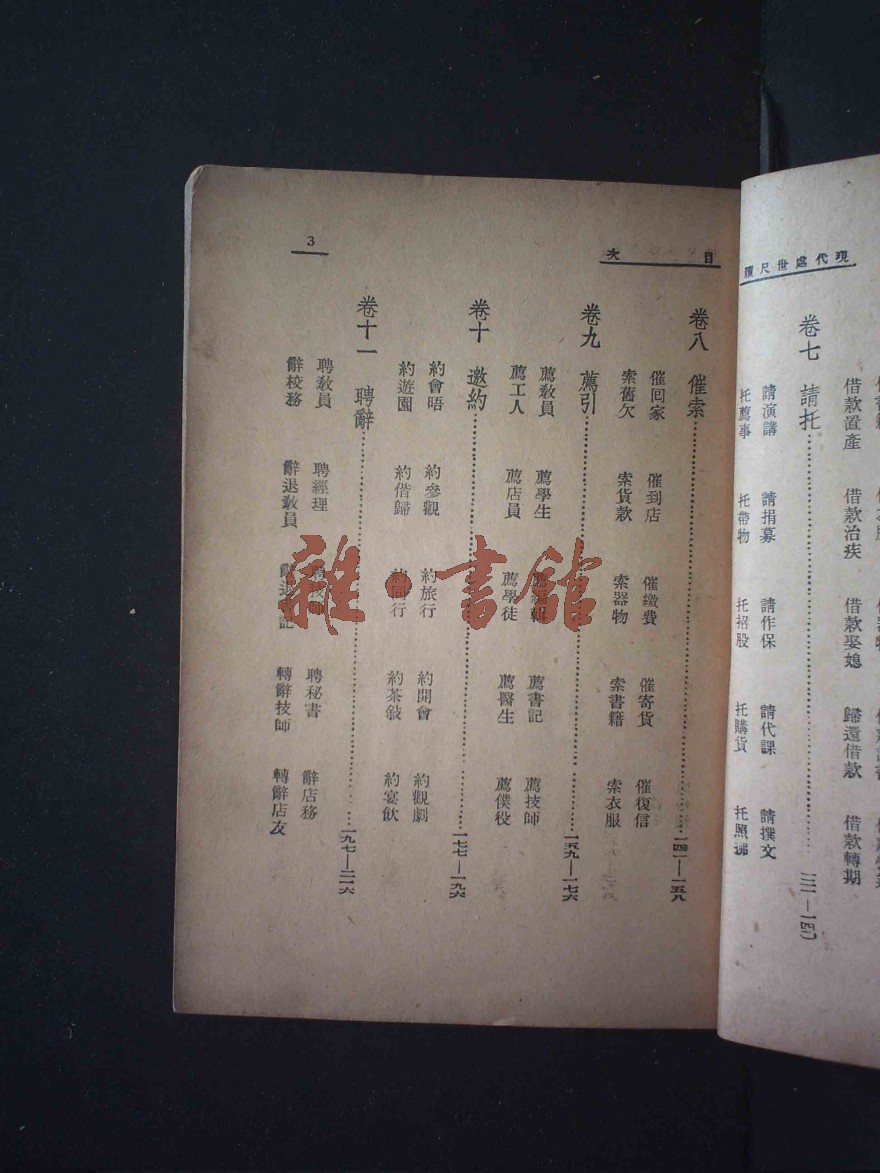 現代處世尺牘
借款置產 借款治疾 借款娶媳 歸還借款 借款轉期
卷七 請托
請演講 請捐募 請作保 請代課 請撰文
托薦事 托帶物 托招股 托購貨 托照拂
目次
卷八 催索……一四一—一五八
催回家 催到店 催繳費 催寄貨 催復信
索舊欠 索貨款 索器物 索書籍 索衣服
卷九 薦引……一五九—一七六
薦教員 薦學生 薦編輯 薦書記 薦技師
薦工人 薦店員 薦學徒 薦醫生 薦僕役
卷十 邀約……一七七—一九六
約會晤 約參觀 約旅行 約開會 約觀劇
約遊園 約偕歸 約同行 約茶敍 約宴飲
卷十一 聘辭……一九七—二一六
聘教員 聘經理 聘技師 聘秘書 辭店務
辭校務 辭退教員 辭退書記 轉辭技師 轉辭店友
3
雜·書館